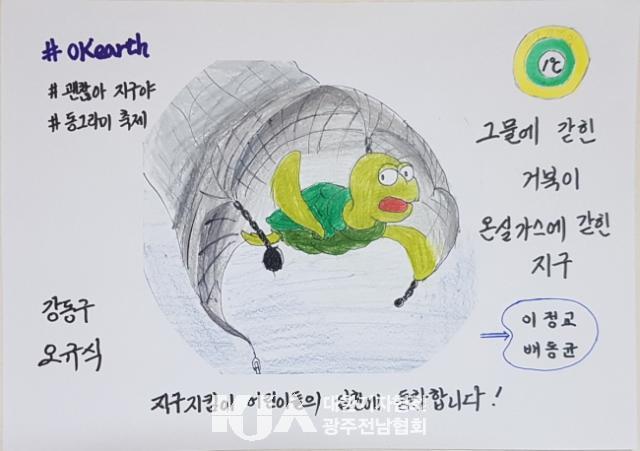 # OKearth
# 괜찮아 지구야
# 동그라미 축제
1℃
그물에 갇힌
거북이
온실가스에 갇힌
지구
강동구
오규식
이정교
배동균
지구지킴이 어린이들의 동참합니다!
광주전남협회